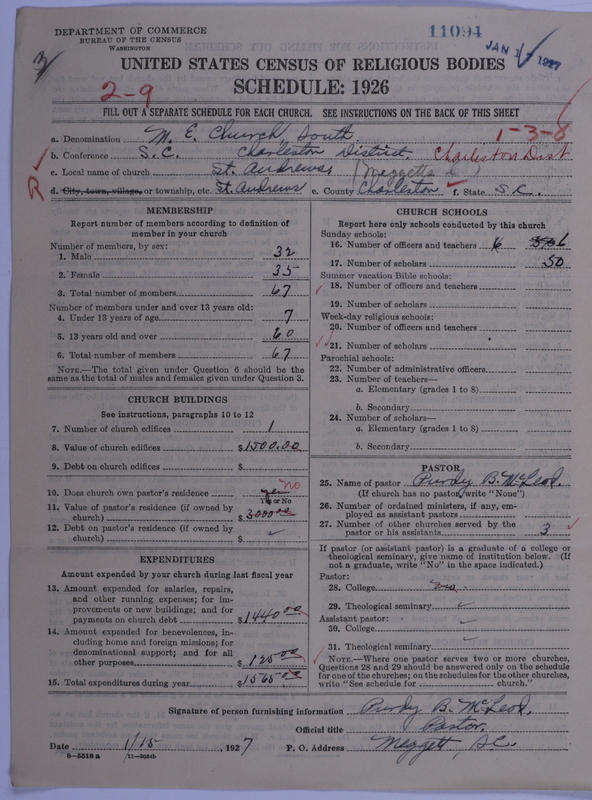 DEPARTMENT OF COMMERCE
BUREAU OF THE CENSUS
WASHINGTON
11094
JAN 1927
UNITED STATES CENSUS OF RELIGIOUS BODIES
SCHEDULE: 1926
2-9
FILL OUT A SEPARATE SCHEDULE FOR EACH CHURCH. SEE INSTRUCTIONS ON THE BACK OF THIS SHEET
1-3-8
a. Denomination M. E. Church, South
b. Conference S. C. Charleston District. Charleston Dist
c. Local name of church St. Andrews (Meggetts
d. City, town, village, or township, etc. St. Andrews e. County Charleston f. State S.C.
R
MEMBERSHIP
Report number of members according to definition of member in your church
Number of members, by sex:
1. Male 32
2. Female 35
3. Total number of members 67
Number of members under and over 13 years old:
4. Under 13 years of age 7
5. 13 years old and over 60
6. Total number of members 67
NOTE.—The total given under Question 6 should be same as the total of males and females given under Question 3.
CHURCH BUILDINGS
See instructions, paragraphs 10 to 12
7. Number of church edifices 1
8. Value of church edifices $1500.00
9. Debt on church edifices $
10. Does church own pastor's residence yes no
Yes or No
11. Value of pastor's residence (if owned by church) $3000.00
12. Debt on pastor's residence (if owned by church) $
EXPENDITURES
Amount expended by your church during last fiscal year
13. Amount expended for salaries, repairs, and other running expenses; for improvements or new buildings; and for payments on church debt $1440.00
14. Amount expended for benevolences, including home and foreign missions; for denominational support; and for all other purposes $125.00
15. Total expenditures during year $1565.00
CHURCH SCHOOLS
Report here only schools conducted by this church
Sunday schools:
16. Number of officers and teachers 6 6
17. Number of scholars 50
Summer vacation Bible schools:
18. Number of officers and teachers
19. Number of scholars
Week-day religious schools:
20. Number of officers and teachers
21. Number of scholars
Parochial schools:
22. Number of administrative officers
23. Number of teachers—
a. Elementary (grades 1 to 8)
b. Secondary
24. Number of scholars—
a. Elementary (grades 1 to 8)
b. Secondary
PASTOR
25. Name of pastor Purdy B. McLeod.
(If church has no pastor, write "None")
26. Number of ordained ministers, if any, employed as assistant pastors
27. Number of other churches served by the pastor or his assistants 3
If pastor (or assistant pastor) is a graduate of a college or theological seminary, give name of institution below. (If not a graduate, write "No" in the space indicated.)
Pastor:
28. College no
29. Theological seminary
Assistant pastor:
30. College
31. Theological seminary
NOTE.—Where one pastor serves two or more churches, Questions 28 and 29 should be answered only on the schedule for one of the churches; on the schedules for the other churches, write "See schedule for church."
Signature of person furnishing information Purdy B. McLeod,
Official title Pastor.
Date 1/15, 1927 P. O. Address Meggett, S.C.
8-5518 a 11-9034b